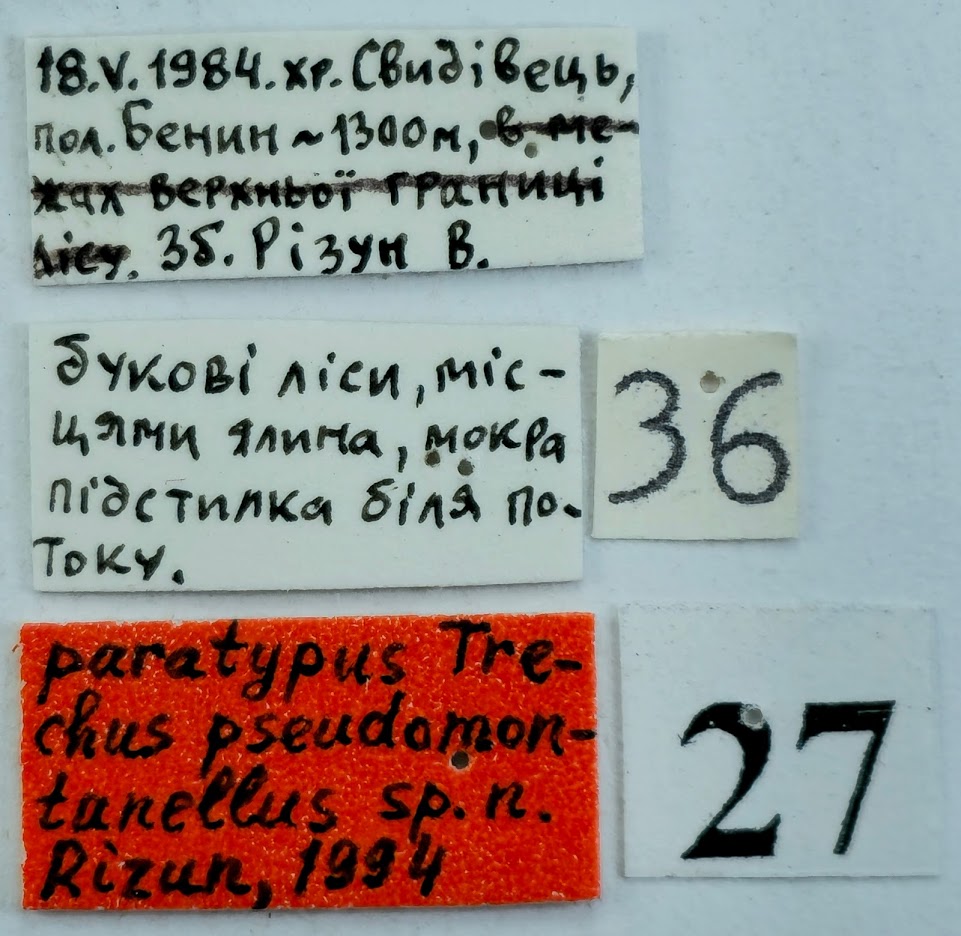 18.V.1984. хр. Свидівець,
пол. Бенин ~ 1300м, в ме-
жах верхньої границі
лісу. Зб. Різун В.
букові ліси, міс-
цями ялина, мокра
підстилка біля по-
току.
36
paratypus Tre-
chus pseudomon-
tanellus sp. n.
Rizun, 1994
27